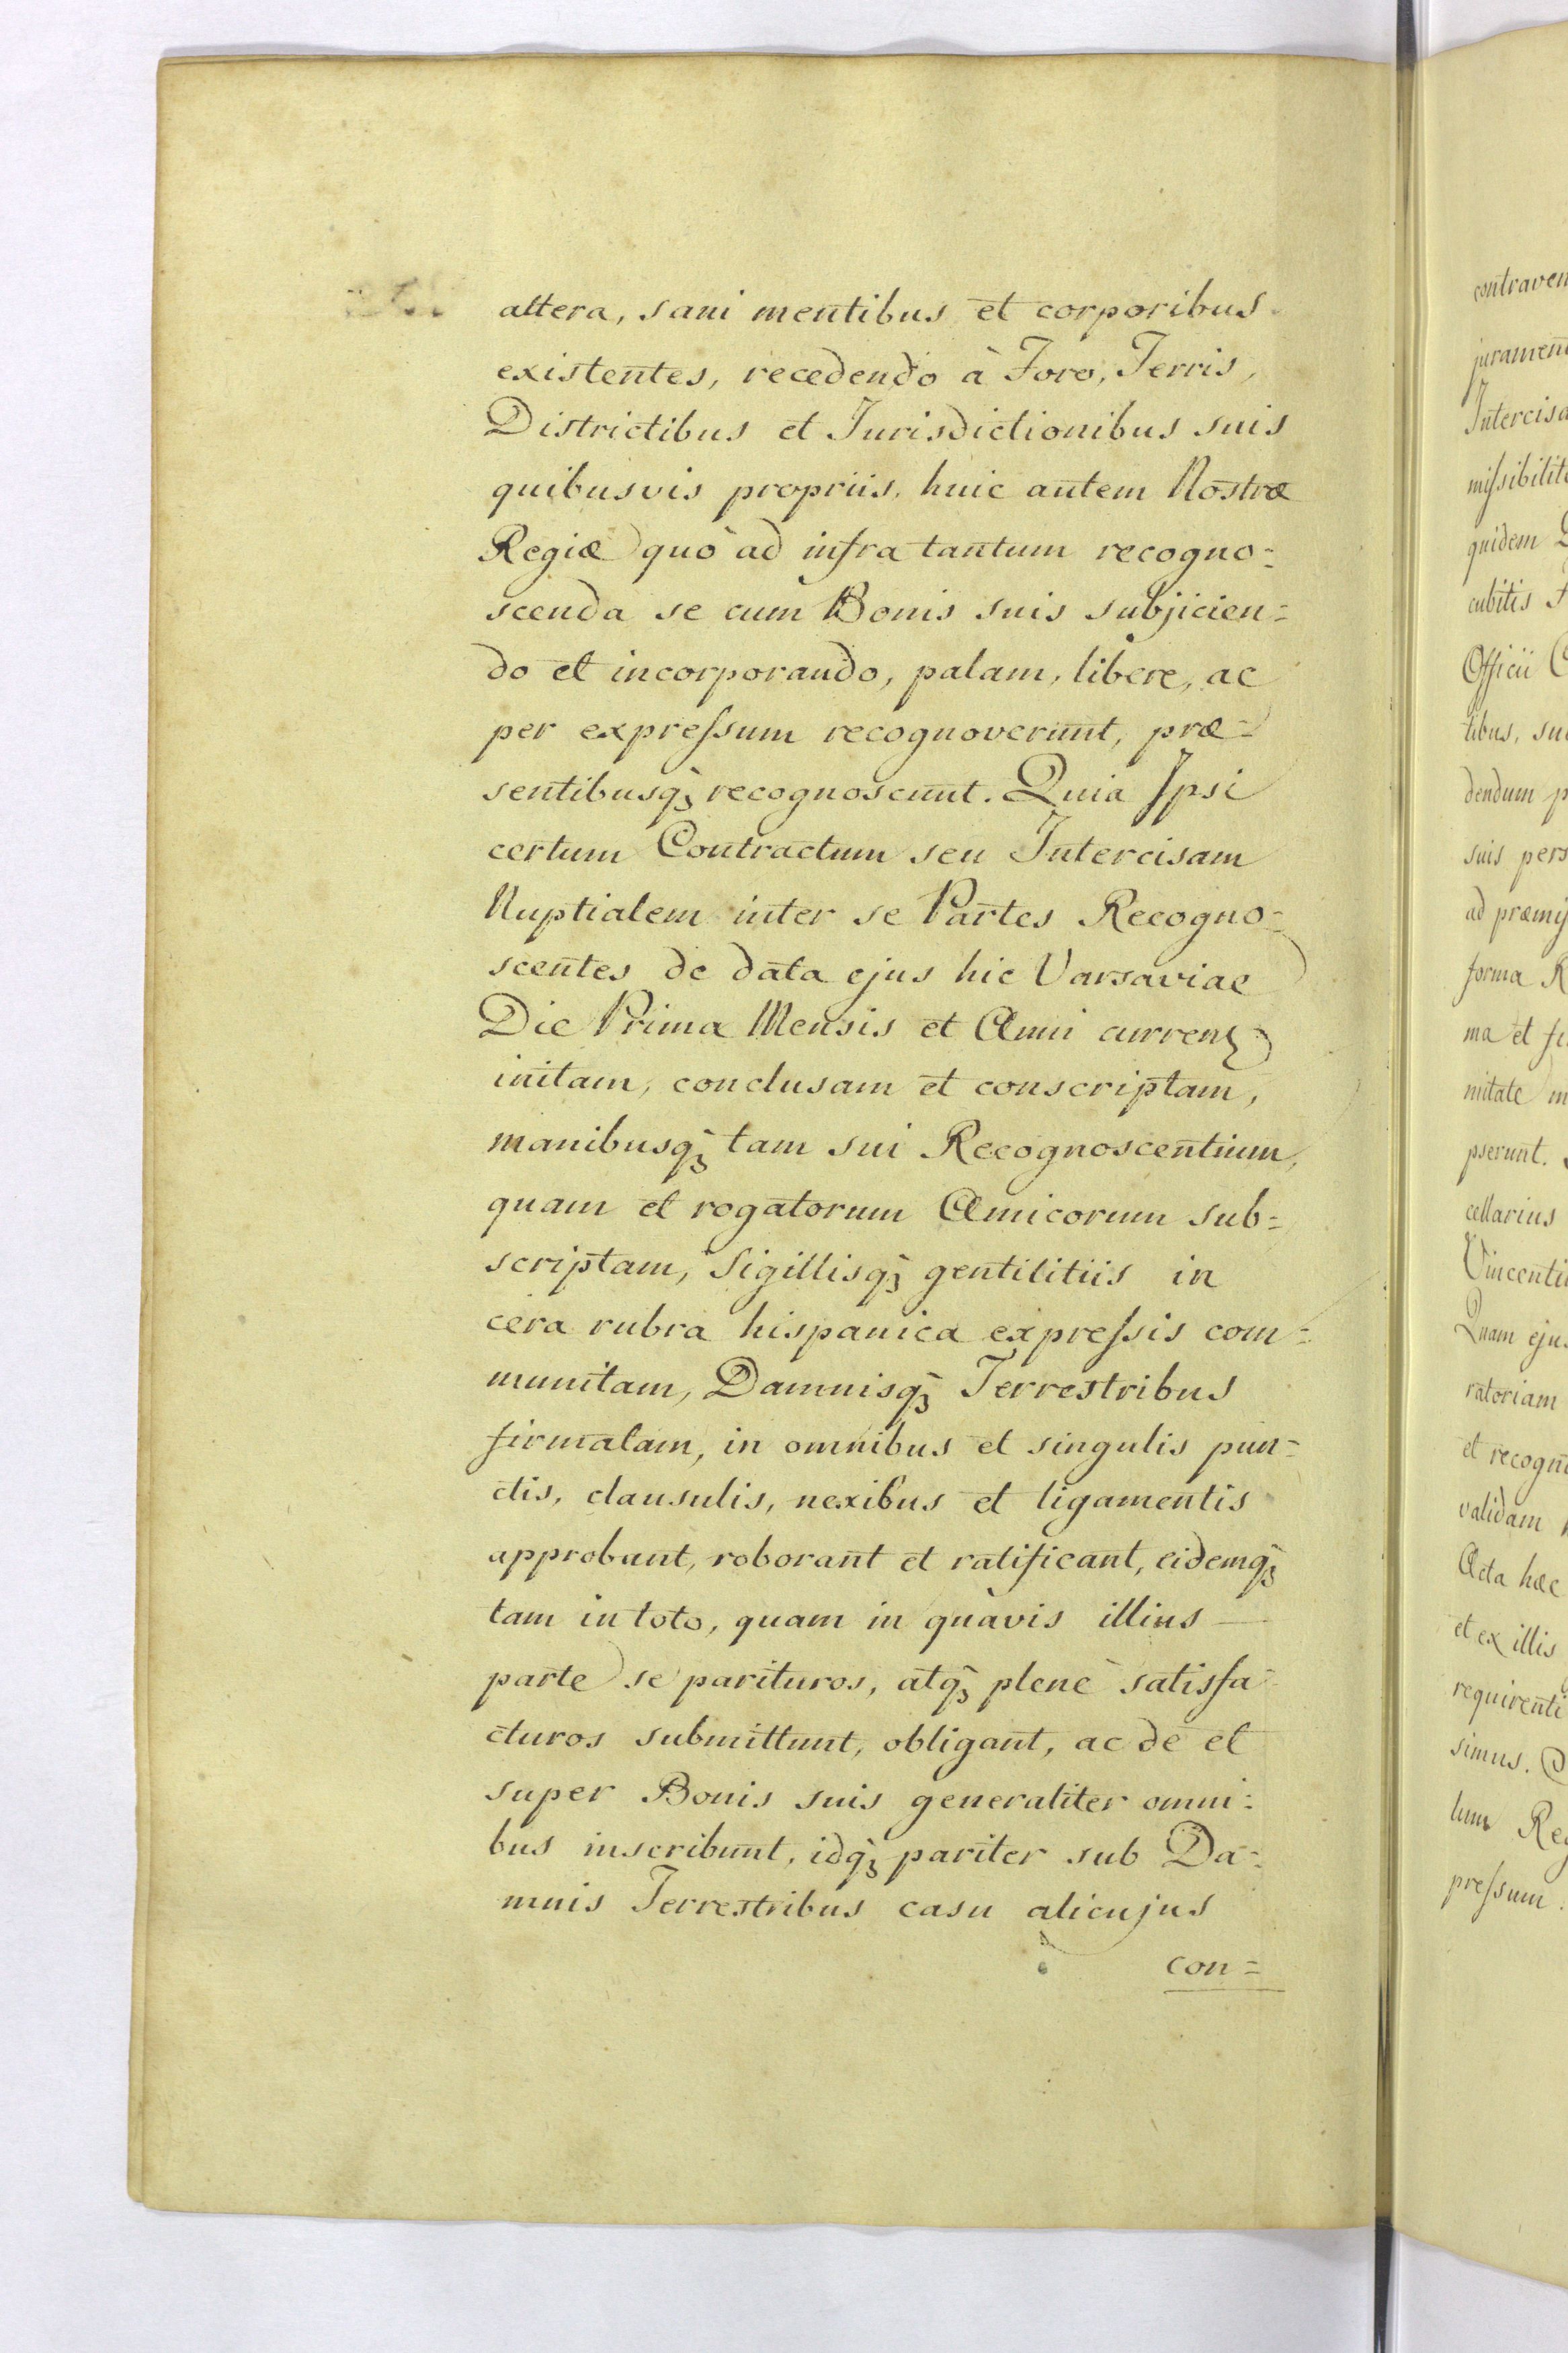 altera, sani mentibus et corporibus
existentes, recedendo à Foro, Terris,
Districtibus et Jurisdictionibus suis
quibusvis propriis, huic autem Nostræ
Regiæ quò ad infra tantum recogno=
scenda se cum Bonis suis subjicien=
do et incorporando, palam, libere, ac
per expreſsum recognoverunt, præ=
sentibusq̀ꝫ recognoscunt. Quia Ipsi
certum Contractum seu Intercisam
Nuptialem inter se Partes Recogno=
scentes de data ejus hic Varsaviae
Die Prima Mensis et Anni currenꝫ
initam, conclusam et conscriptam,
manibusq̀ꝫ tam sui Recognoscentium,
quam et rogatorum Amicorum sub=
scriptam, Sigillisq̀ꝫ gentilitiis in
cera rubra hispanica expreſsis com=
munitam, Damnisq̀ꝫ Terrestribus
firmatam, in omnibus et singulis pun=
ctis, clausulis, nexibus et ligamentis
approbant, roborant et ratificant, eidemq̀ꝫ
tam in toto, quam in quàvis illius —
parte se parituros, atq̀ꝫ plenè satisfa=
cturos submittunt, obligant, ac de et
super Bonis suis generaliter omni=
bus inscribunt, idq̀ꝫ pariter sub Da=
mnis Terrestribus casu alicujus
con=
contraven
jurament
Intercisa
miſsibilite
quidem
cubitis
Officii
tibus, su
dendum p
suis pers
ad præmiſ
forma R
ma et fi
mitate m
pserunt.
cellarius
Vincenti
Quam ejus
ratoriam
et recogn
validam
Acta hæc
et ex illis
requirenti
simus.
tum Reg
preſsum.